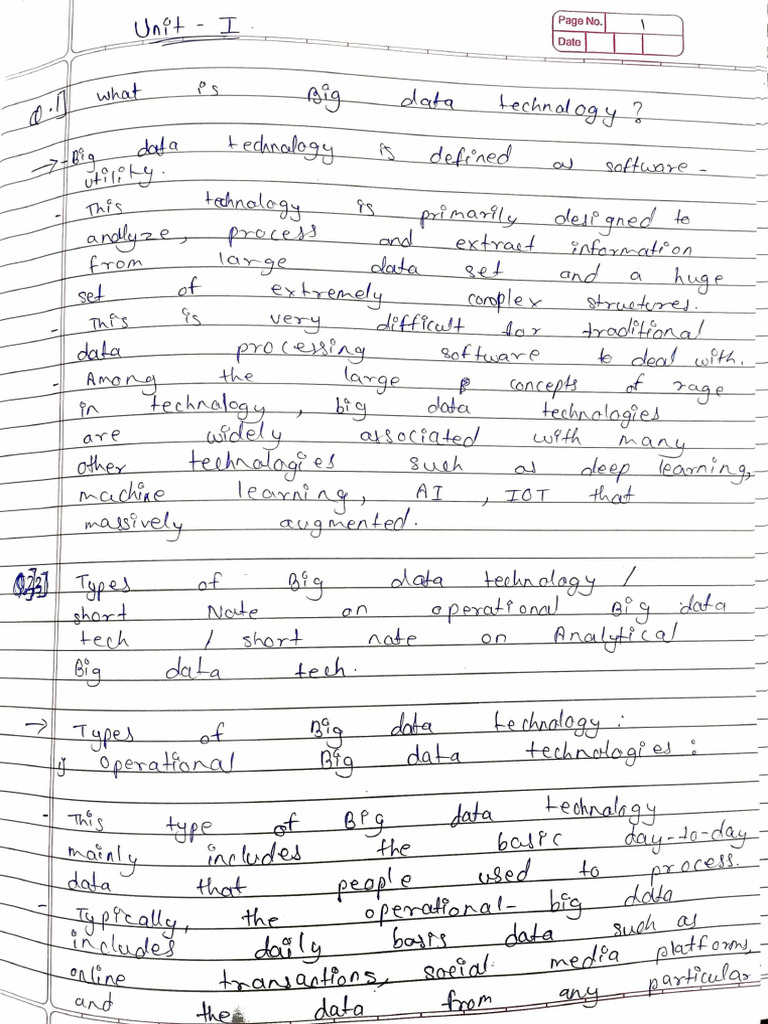 Unit - I.
Page No. 1
Date
Q.1] what is Big data technology?
→ - Big data technology is defined as software -
utility.
- This technology is primarily designed to
analyze, process and extract information
from large data set and a huge
set of extremely complex structures.
- This is very difficult for traditional
data processing software to deal with.
- Among the large concepts of rage
in technology, big data technologies
are widely associated with many
other technologies such as deep learning,
machine learning, AI, IOT that
massively augmented.
Types of Big data technology /
short Note on operational Big data
tech / short note on Analytical
Big data tech.
→ Types of Big data technology :
i) operational Big data technologies :
- This type of Big data technology
mainly includes the basic day-to-day
data that people used to process.
- Typically, the operational- big data
includes daily basis data such as
online transactions, social media platforms,
and the data from any particular